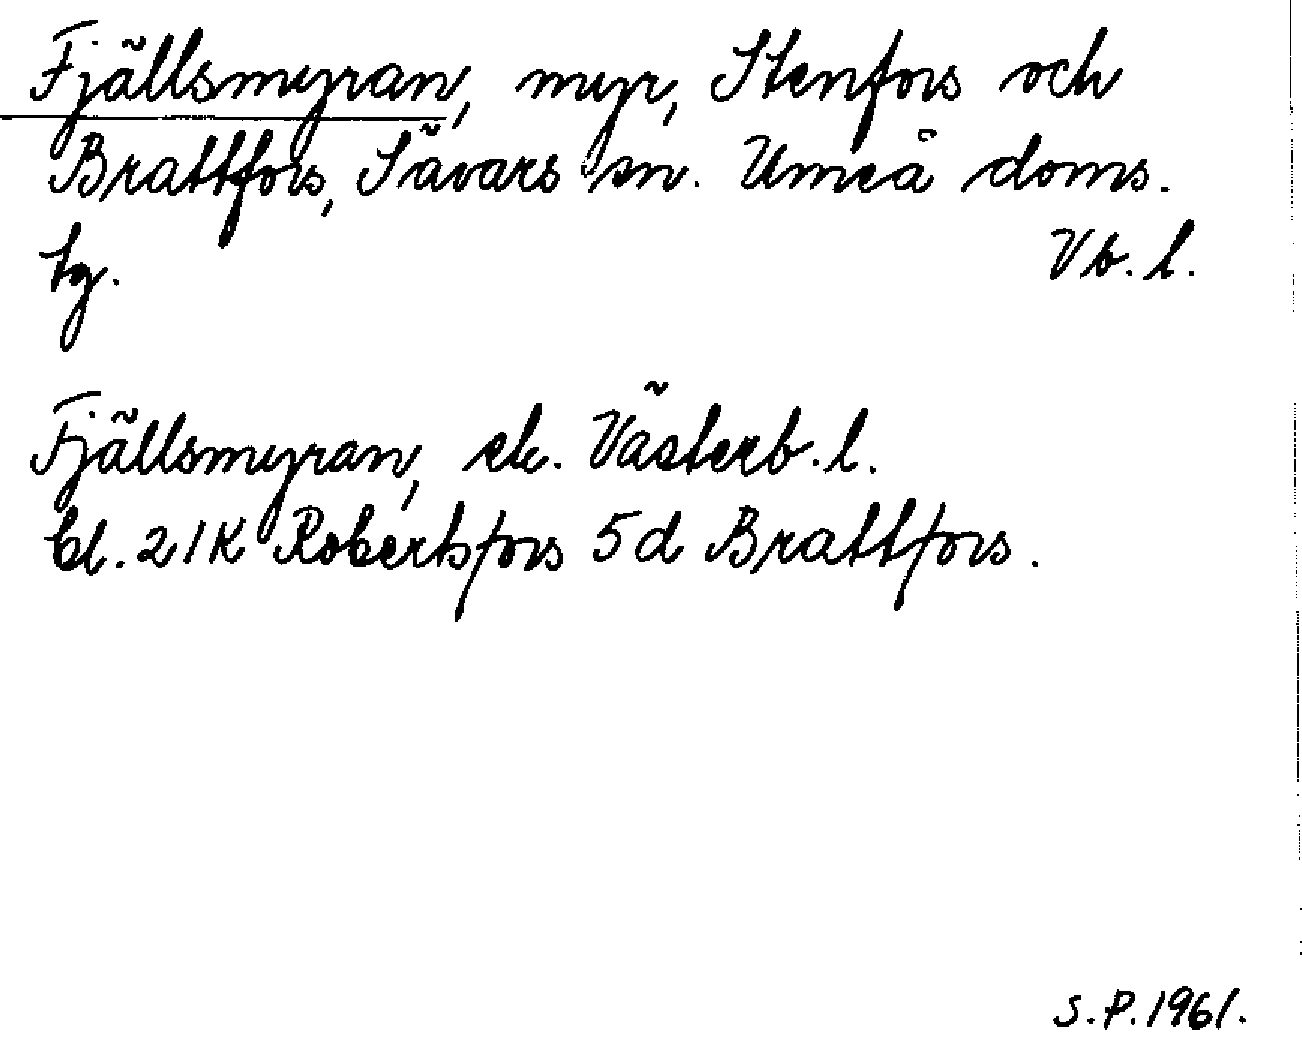 Fjällsmyran, myr, Stenfors och
Brattfors, Sävars sn. Umeå doms.
tg. Vb. l.
Fjällsmyran, ek. Västerb. l.
bl. 21K Robertsfors 5d Brattfors.
S.P. 1961.